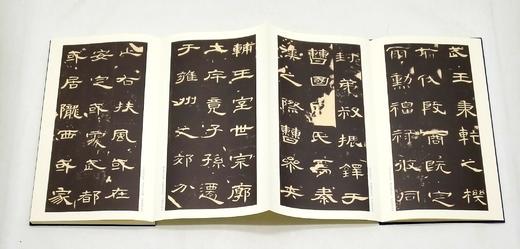 武王秉乾之機
翦伐殷商既定
爾勳福祿攸同
封弟叔振鐸于
曹國氏焉秦
漢之際曹參夾
輔王室世宗廓
土斥竟子孫遷
于雍州之郊分
止右扶風或在
安定或處武都
或居隴西或家